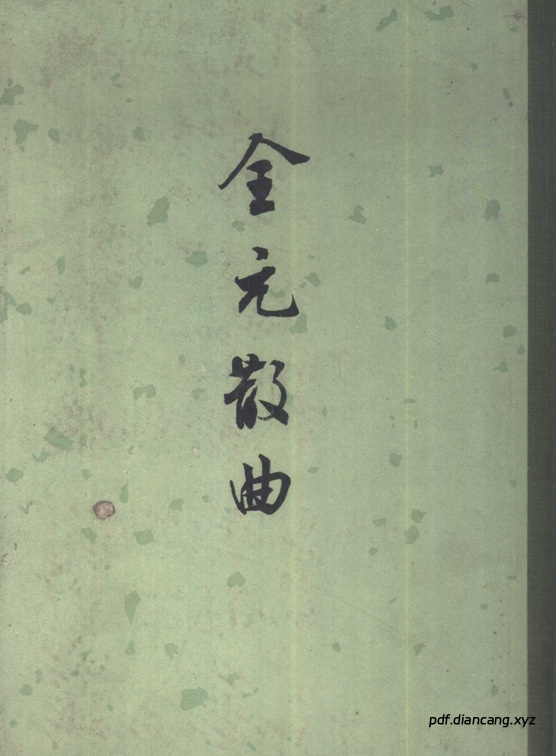 全元散曲
pdf.diancang.xyz